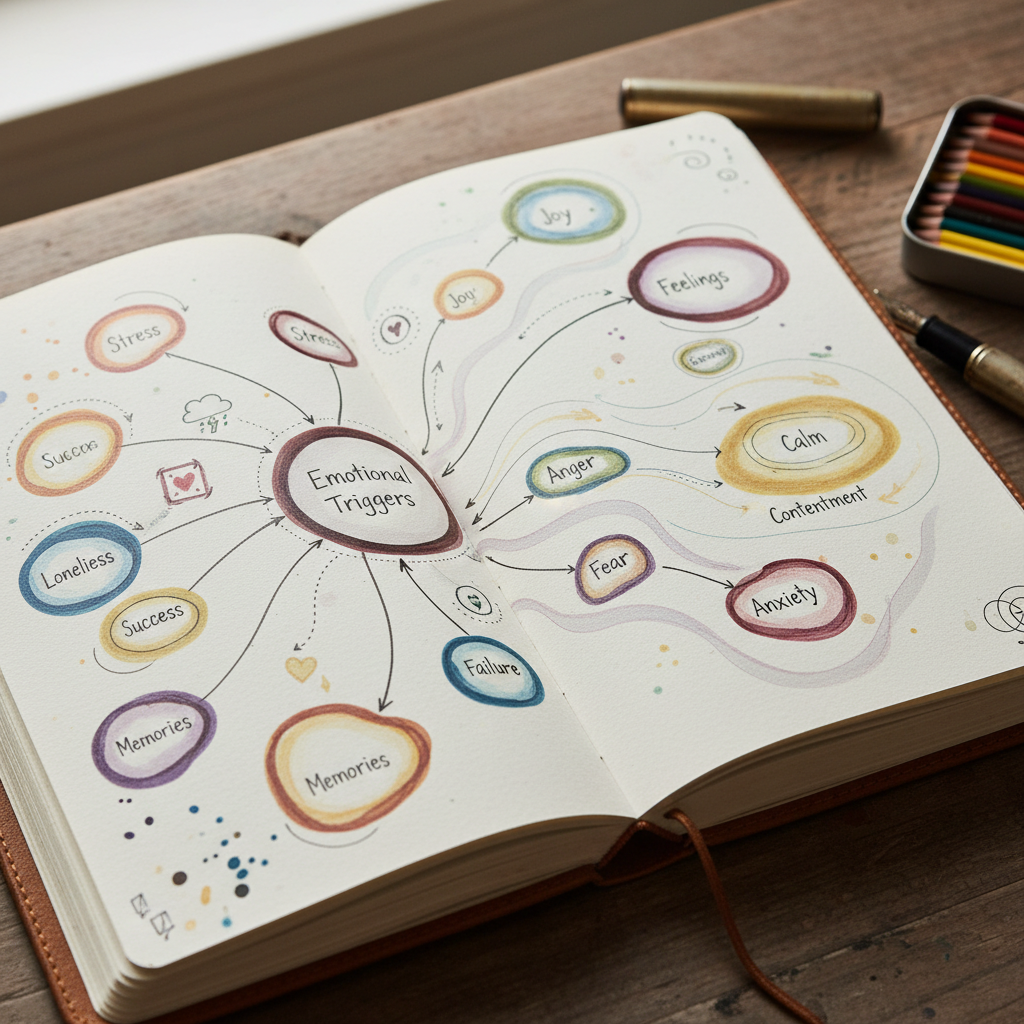 Joy
Joy
Feelings
Stress
Stress
Success
Emotional
Triggers
Calm
Contentment
Anger
Loneliess
Success
Fear
Anxiety
Failure
Memories
Memories